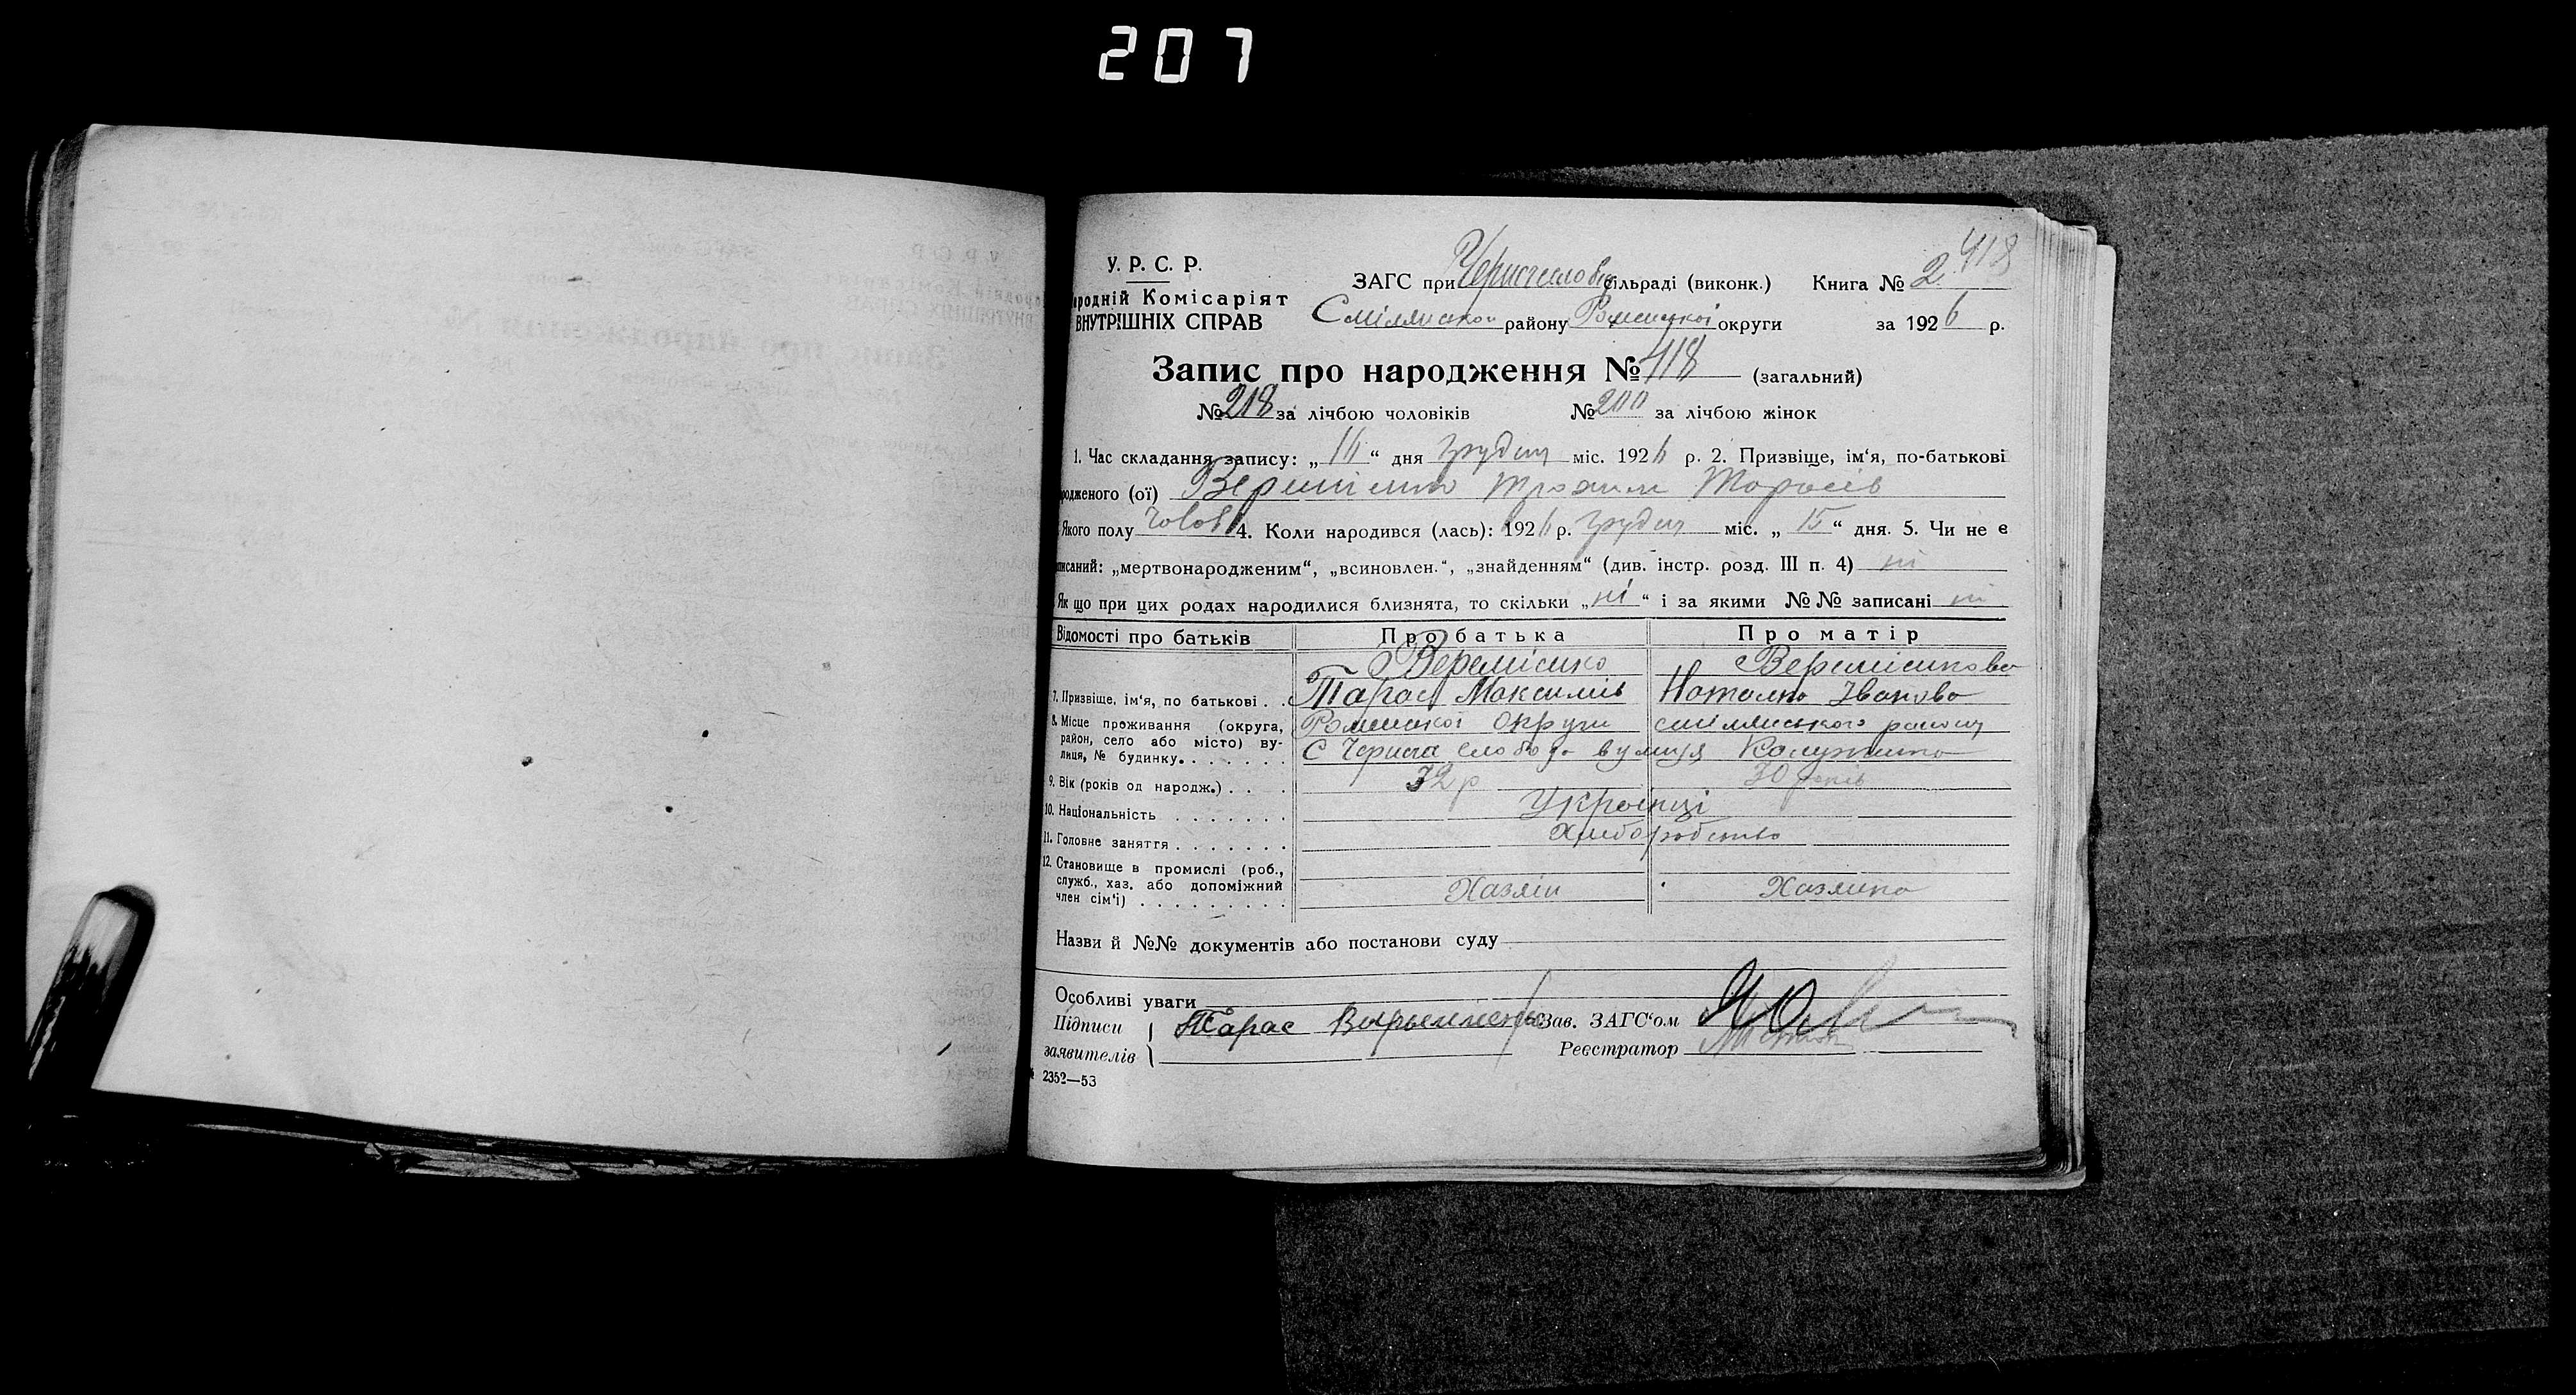 207
418
У. Р. С. Р.
ЗАГС при сільраді (виконк.) Книга № 2
родній Комісаріят
ВНУТРІШНІХ СПРАВ
району Роменської округи за 1926 р.
Запис про народження № 418 (загальний)
№ 218 за лічбою чоловіків № 200 за лічбою жінок
1. Час складання запису: „16“ дня грудня міс. 1926 р. 2. Призвіще, ім‘я, по-батькові
родженого (ої) Тарасів
Якого полу чолов 4. Коли народився (лась): 1926 р. грудня міс. „15“ дня. 5. Чи не є
писаний: „мертвонародженим“, „всиновлен.“, „знайденням“ (див. інстр. розд. III п. 4) ні
Як що при цих родах народилися близнята, то скільки „ні“ і за якими №№ записані ні
Відомості про батьків Про батька Про матір
Веремієнко Веремієнкова
7. Призвіще, ім‘я, по батькові . . Тарас Максимів Наталка Іванова
8. Місце проживання (округа, Роменської Округи смілянського району
район, село або місто) ву-
лиця, № будинку. . . . . . . С Чернеча слобода вулиця
9. Вік (років од народж.) . . . 32 р 30 років
10. Національність . . . . . . . Українці
11. Головне заняття . . . . . . . Хліборобство
12. Становище в промислі (роб.,
служб., хаз. або допоміжний
член сім‘ї) . . . . . . . . . Хазяін Хазяйка
Назви й №№ документів або постанови суду
Особливі уваги
Підписи Тарас Зав. ЗАГС‘ом
заявителів Реєстратор
2352—53